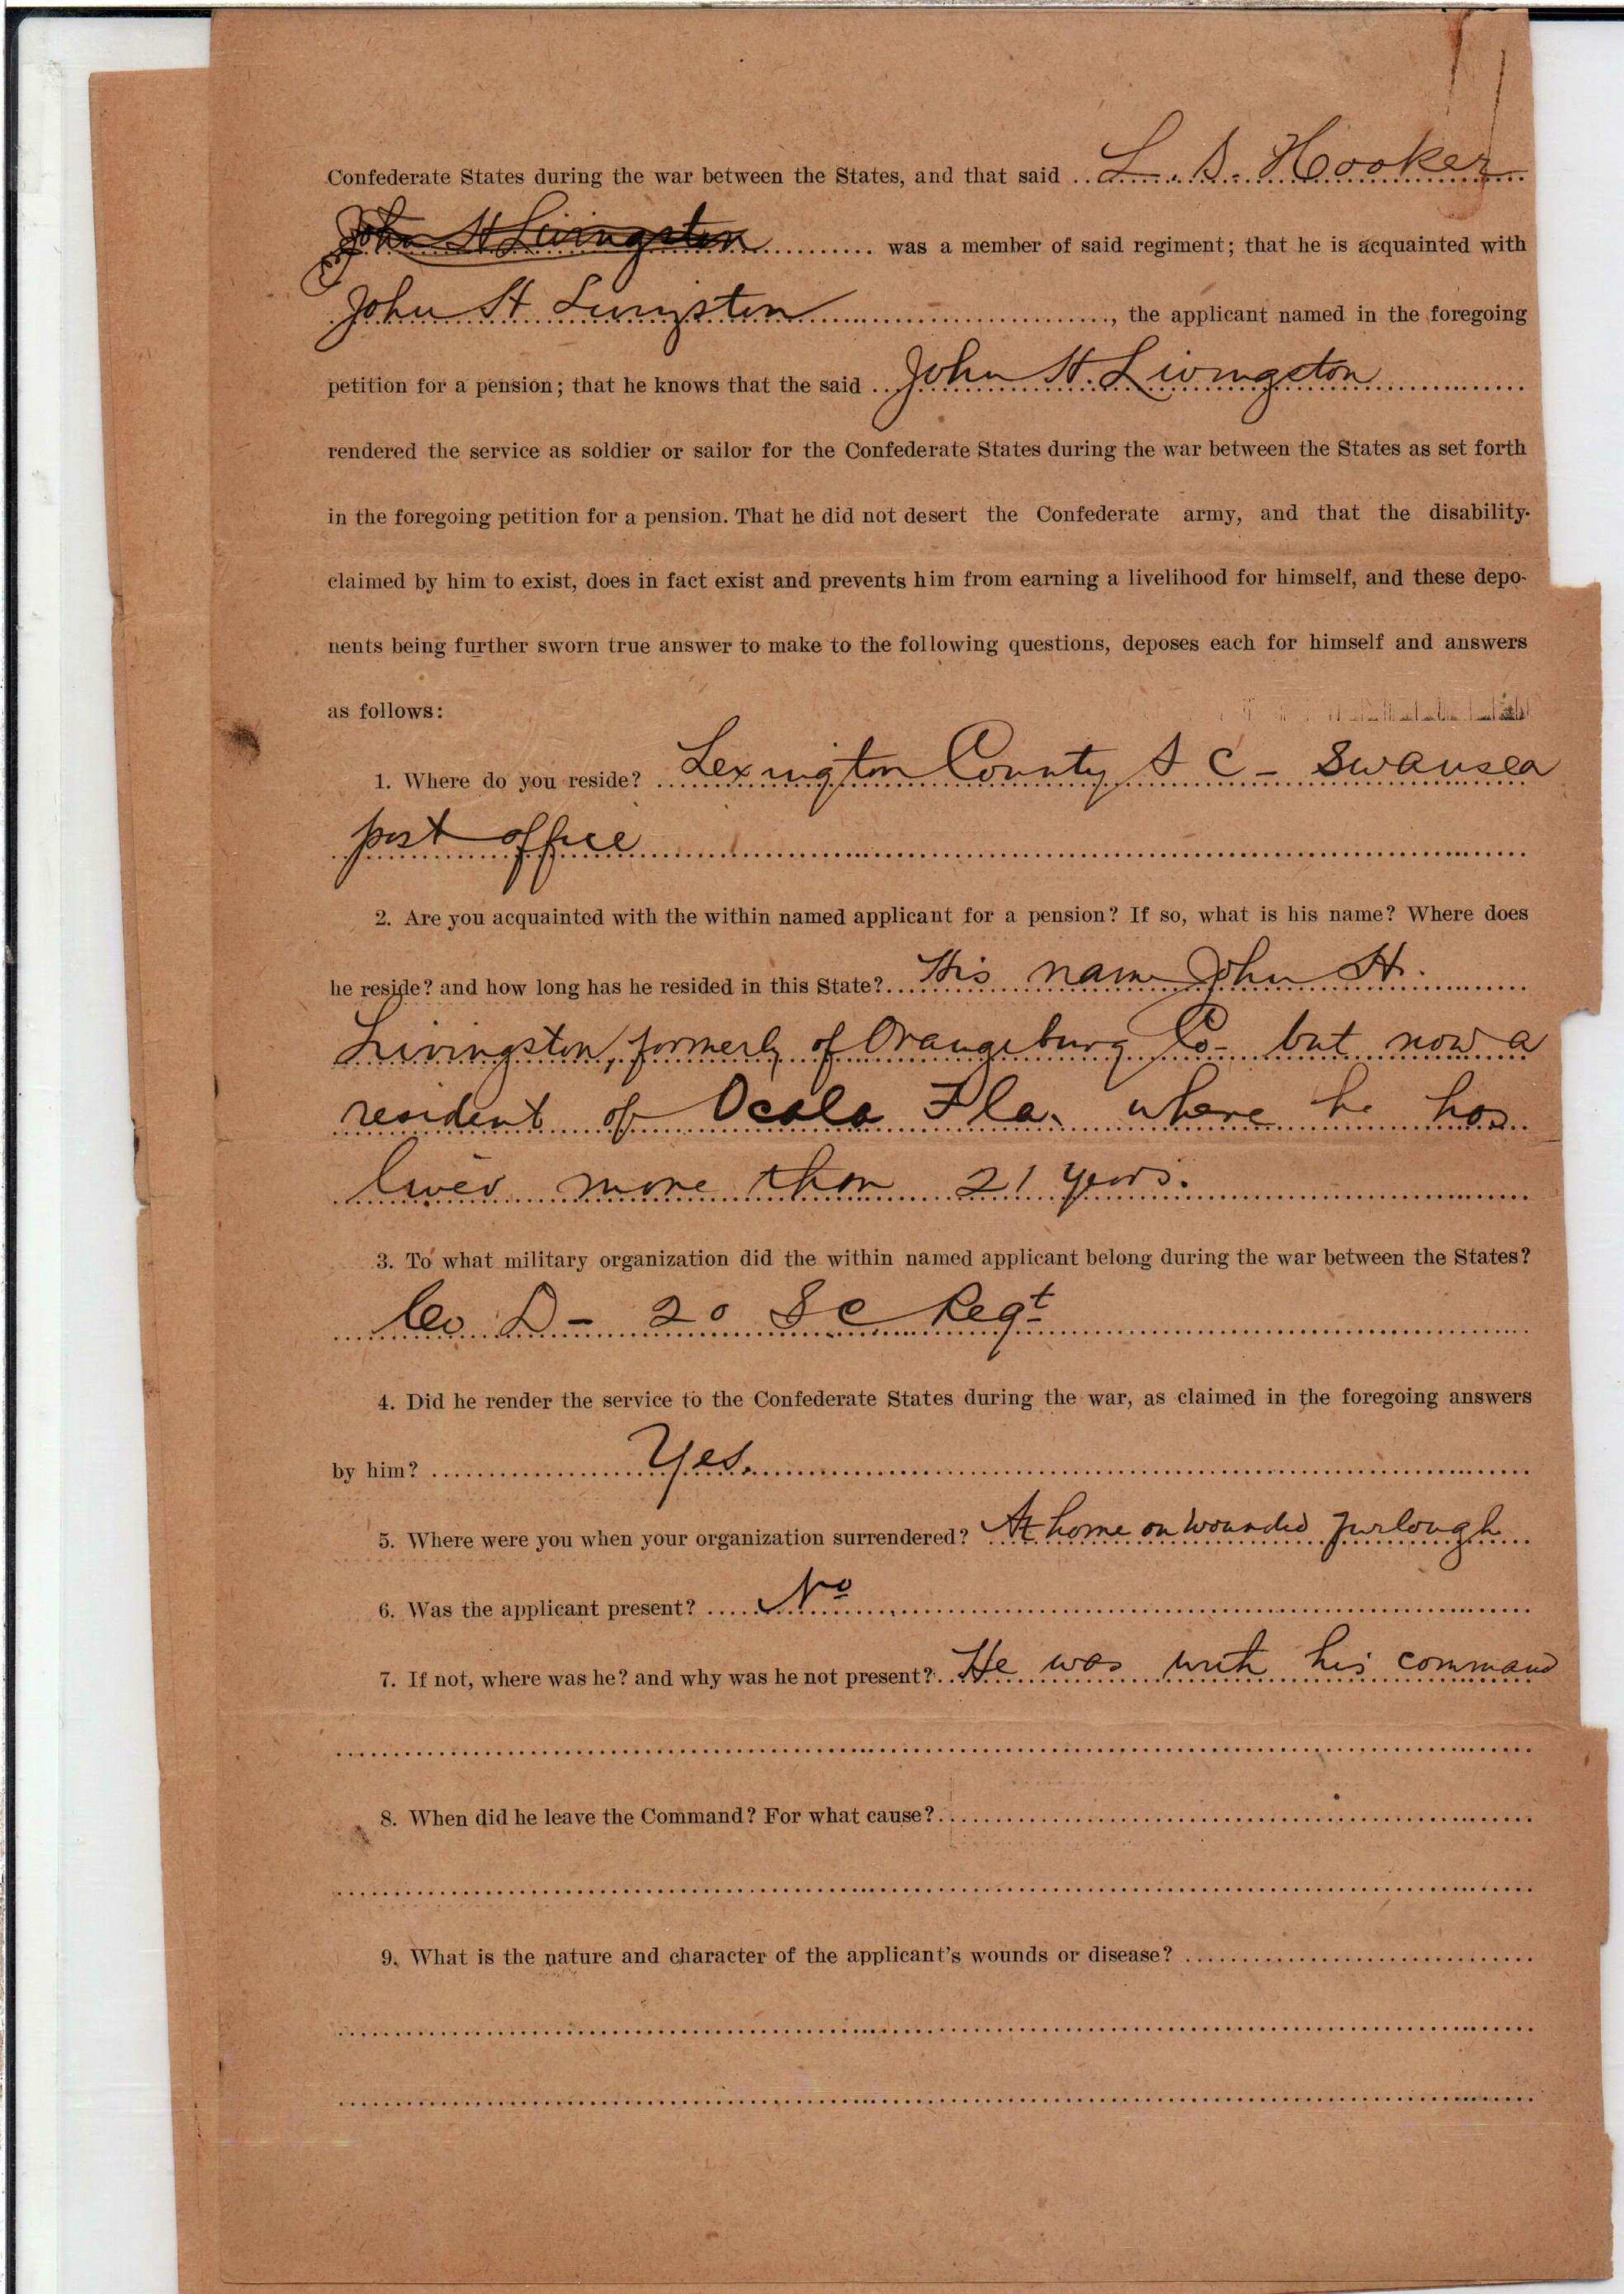 Confederate States during the war between the States, and that said L. S. Hooker
John H Livingston was a member of said regiment; that he is acquainted with
John H Livingston, the applicant named in the foregoing
petition for a pension; that he knows that the said John H. Livingston
rendered the service as soldier or sailor for the Confederate States during the war between the States as set forth
in the foregoing petition for a pension. That he did not desert the Confederate army, and that the disability
claimed by him to exist, does in fact exist and prevents him from earning a livelihood for himself, and these depo-
nents being further sworn true answer to make to the following questions, deposes each for himself and answers
as follows:
1. Where do you reside? Lexington County S C - Swansea
post office
2. Are you acquainted with the within named applicant for a pension? If so, what is his name? Where does
he reside? and how long has he resided in this State? His name John H.
Livingston, formerly of Orangeburg Co- but now a
resident of Ocala Fla. where he has
lived more than 21 years.
3. To what military organization did the within named applicant belong during the war between the States?
Co D - 20 S C Regt
4. Did he render the service to the Confederate States during the war, as claimed in the foregoing answers
by him? Yes.
5. Where were you when your organization surrendered? At home on wounded furlough
6. Was the applicant present? No
7. If not, where was he? and why was he not present? He was with his command
8. When did he leave the Command? For what cause?
9. What is the nature and character of the applicant's wounds or disease?